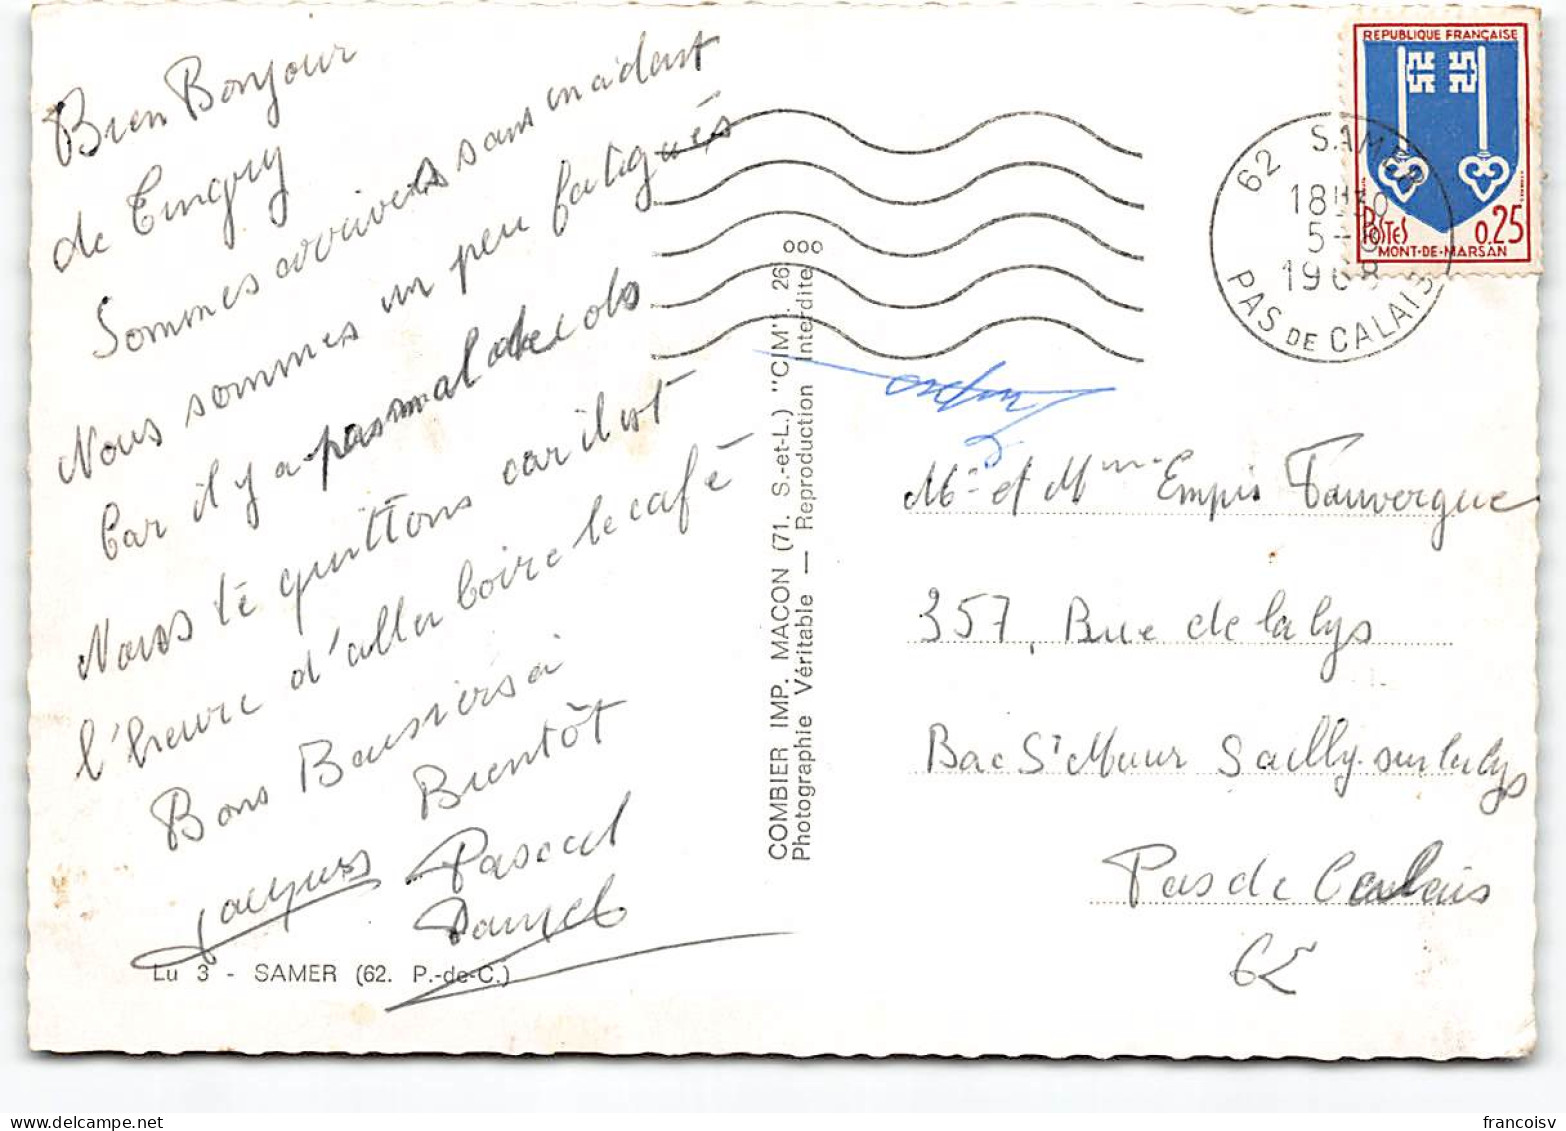 Bien Bonjour
de Tingry
Sommes arrivés sans inadent
Nous sommes un peu fatigués
Car il y a pas mal de cols
Nous te quittons car il est
l'heure d'aller boire le café
Bons Baisiers à
Bientôt
Jacques Pascal
Daniel
Lu 3 - SAMER (62. P.-de-C.)
COMBIER IMP. MACON (71. S.-et-L.) "CIM". 26
Photographie Véritable — Reproduction Interdite
REPUBLIQUE FRANÇAISE
POSTES 0,25
MONT-DE-MARSAN
62 SAMER
18H30
5-8
1968
PAS DE CALAIS
Mr et Mme Empis Fauvergue
357, Rue de la lys
Bac St Maur Sailly sur la lys
Pas de Calais
62
francoisv